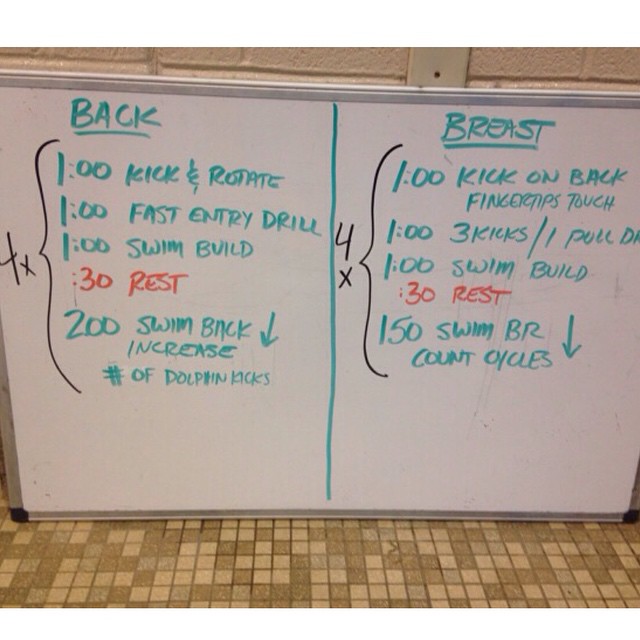 BACK
4x
1:00 KICK & ROTATE
1:00 FAST ENTRY DRILL
1:00 SWIM BUILD
:30 REST
200 SWIM BACK ↓
INCREASE
# OF DOLPHIN KICKS
BREAST
4x
1:00 KICK ON BACK
FINGERTIPS TOUCH
1:00 3 KICKS/1 PULL
1:00 SWIM BUILD
:30 REST
150 SWIM BR ↓
COUNT CYCLES